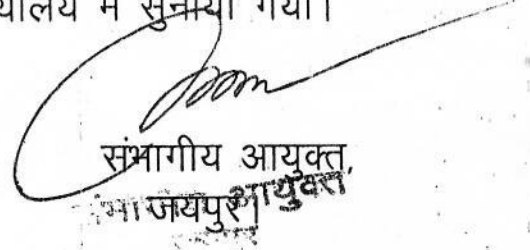 में सुनाया गया।
संभागीय आयुक्त,
जयपुर।
आयुक्त